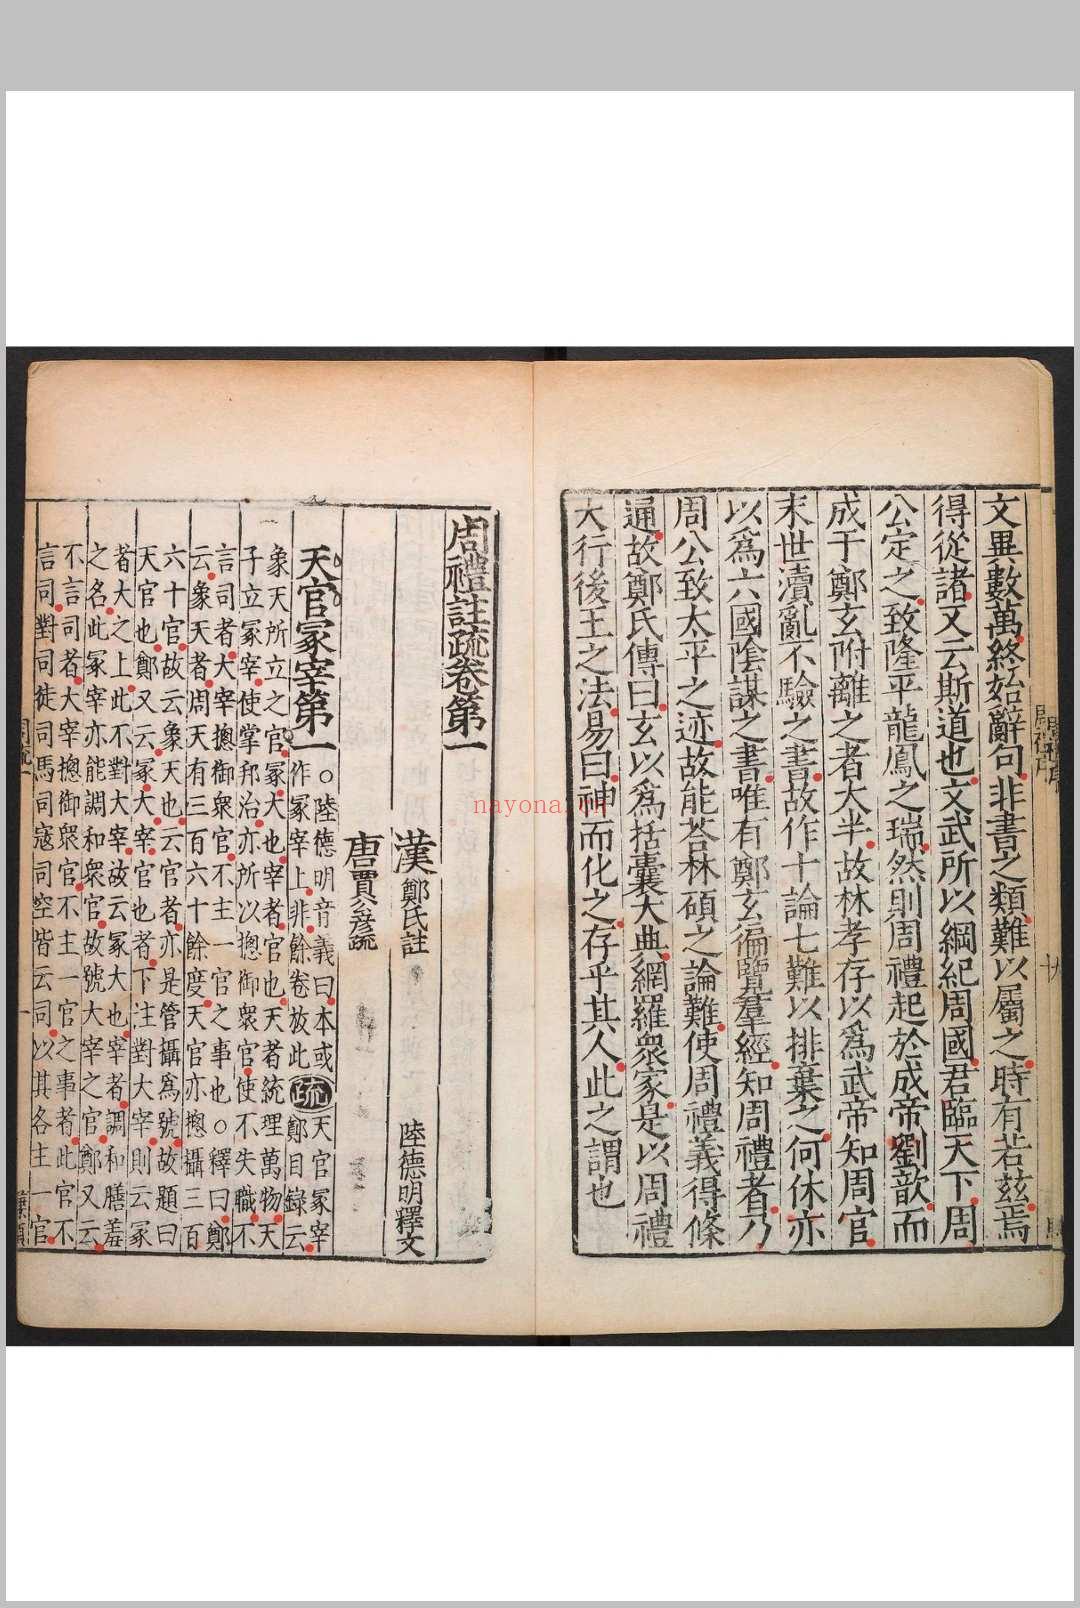 文異數萬終始辭句非書之類難以屬之時有若茲焉
得從諸又云斯道也文武所以綱紀周國君臨天下周
公定之致隆平龍鳳之瑞然則周禮起於成帝劉歆而
成于鄭玄附離之者大半故林孝存以為武帝知周官
末世瀆亂不驗之書故作十論七難以排棄之何休亦
以為六國陰謀之書唯有鄭玄徧覽羣經知周禮者乃
周公致太平之迹故能荅林碩之論難使周禮義得條
通故鄭氏傳曰玄以為括囊大典網羅衆家是以周禮
大行後王之法易曰神而化之存乎其人此之謂也
周禮註疏卷第一
漢鄭氏註 陸德明釋文
唐賈公彥疏
天官冢宰第一
○陸德明音義曰本或
作冢宰上非餘卷放此
疏
天官冢宰
鄭目錄云
象天所立之官冢大也宰者官也天者統理萬物天
子立冢宰使掌邦治亦所以揔御衆官使不失職不
言司者大宰揔御衆官不主一官之事也○釋曰鄭
云象天者周天有三百六十餘度天官亦揔攝三百
六十官故云象天也云官者亦是管攝為號故題曰
天官也鄭又云冢大宰官也者下注對大宰則云冢
者大之上此不對大宰故云冢大也宰者調和膳羞
之名此冢宰亦能調和衆官故號大宰之官鄭又云
不言司者大宰揔御衆官不主一官之事者此官不
言司對司徒司馬司寇司空皆云司以其各主一官
nayona.cn